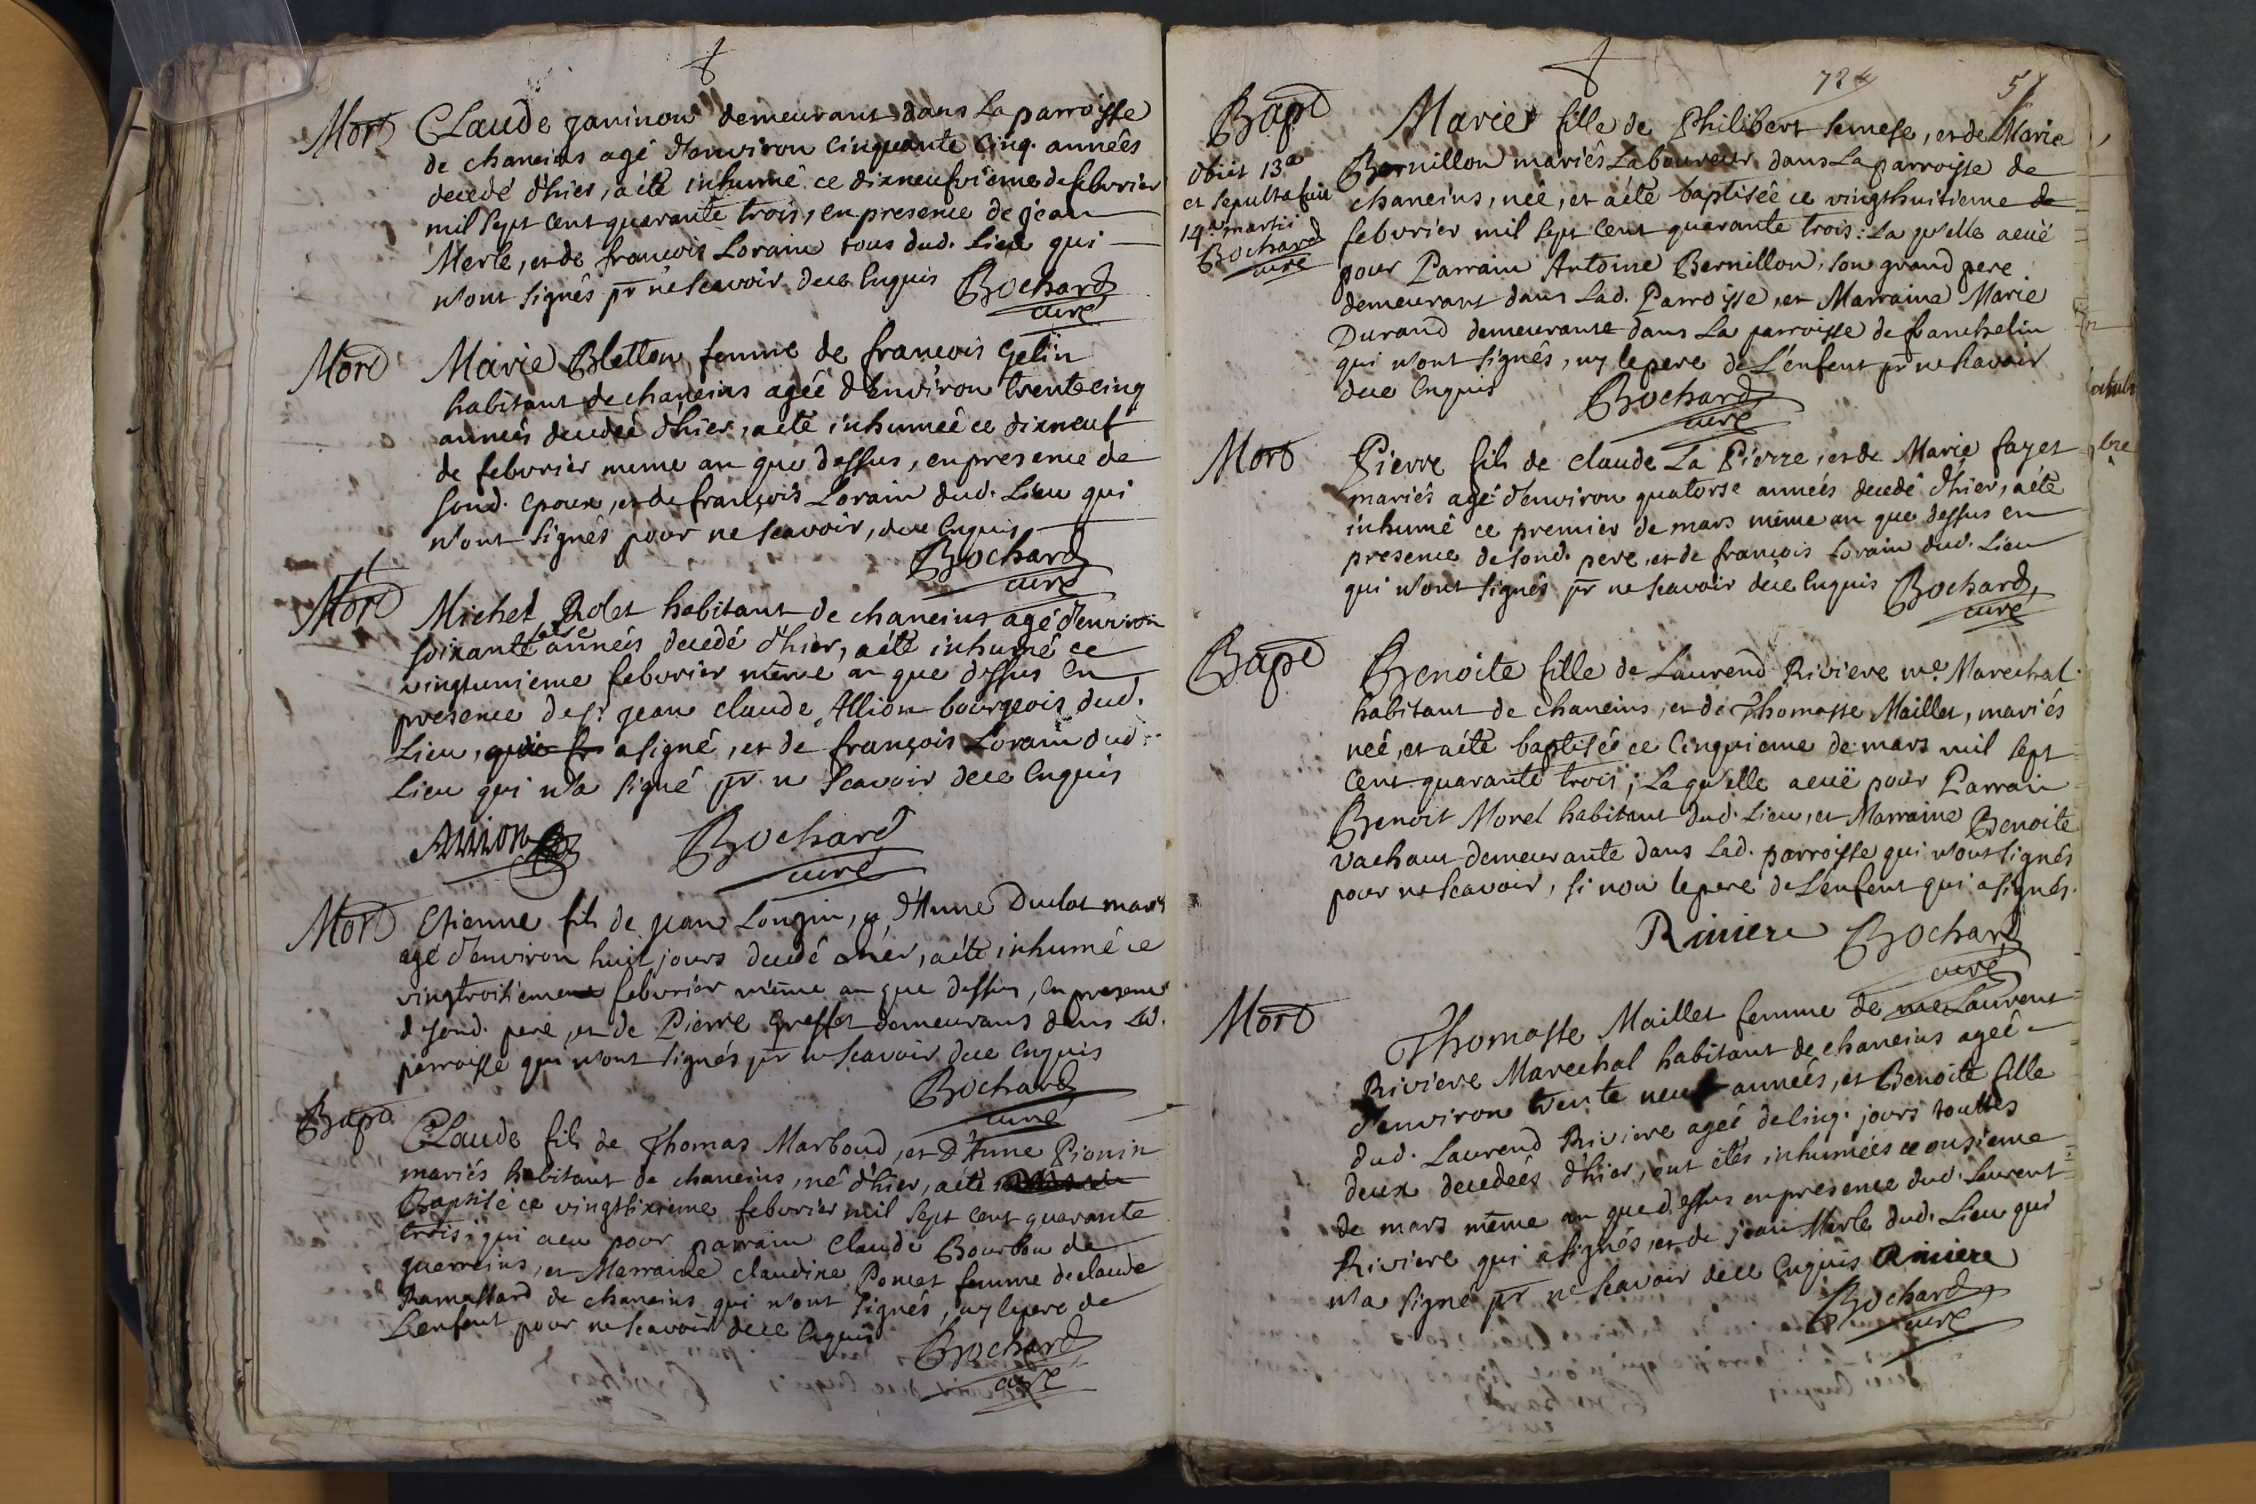 Mort Claude janinon demeurant dans la parroisse
de chaneins agé d'environ cinquante cinq. années
decedé d'hier, a été inhumé ce dixneufvieme de febvrier
mil sept cent quarante trois, en presence de jean
Merle, et de francois Lorain tous dud. Lieu qui
n'ont signés pr ne scavoir dece enquis Bochard
curé
Mort Marie Bletton femme de francois Gelin
habitant de chaneins agée d'environ trente cinq
années decedée d'hier, a été inhumée ce dixneuf
de febvrier meme an que dessus, en presence de
sond. epoux, et de françois Lorain dud. Lieu qui
n'ont signés pour ne scavoir, dece enquis
Bochard
curé
Mort Michel Rolet habitant de chaneins agé d'environ
soixante années decedé d'hier, a été inhumé ce
vingtunieme febvrier même an que dessus en
presence de sr. jean claude Allion bourgeois dud.
Lieu, qui a signé, et de françois Lorain dud.
Lieu qui n'a signé pr ne scavoir dece enquis
Allion Bochard
curé
Mort Etienne fils de jean Longin, et d'Anne Duclot mariés
agé d'environ huit jours decedé d'hier, a été inhumé ce
vingtroisieme febvrier même an que dessus, en presence
de sond. pere, et de Pierre Greffet demeurans dans lad.
parroisse qui n'ont signés pr ne scavoir dece enquis
Bochard
curé
Bapt Claude fils de Thomas Marboud, et d'Anne Pionin
mariés habitant de chaneins, né d'hier, a été
Baptisé ce vingtsixieme febvrier mil sept cent quarante
trois; qui a eu pour parrain claude Bourbon de
guerreins, et Marraine claudine Poncet femme declaude
Ramassard de chaneins qui n'ont signés, ny le pere de
L'enfent pour ne scavoir dece enquis
Bochard
curé
724 51
Bapt Marie fille de Philibert semese, et de Marie
Bernillon mariés Laboureur dans La parroisse de
chaneins, née, et a été baptisée ce vingthuitieme de
febvrier mil sept cent quarante trois: La qu'elle a eue
pour Parrain Antoine Bernillon, son grand pere
demeurant dans Lad. Parroisse, et Marraine Marie
Durand demeurante dans La parroisse de francheleins
qui n'ont signés, ny le pere de L'enfent pr ne scavoir
dece enquis Bochard
curé
obiit 13a
et sepulta fuit
14a martii
Bochard
curé
Mort Pierre fils de claude La Pierre, et de Marie fayet
mariés agé d'environ quatorse années decedé d'hier, a été
inhumé ce premier de mars même an que dessus en
presence de sond. pere, et de françois Lorain dud. Lieu
qui n'ont signés pr ne scavoir dece enquis Bochard
curé
Bapt Benoite fille de Laurend Riviere me. Marechal
habitant de chaneins, et de Thomasse Maillet, mariés
née, et a été baptisée ce cinquieme de mars mil sept
cent quarante trois; La qu'elle a euë pour Parrain
Benoit Morel habitant dud. Lieu, et Marraine Benoite
vachant demeurante dans Lad. parroisse qui n'ont signés
pour ne scavoir, si non le pere de L'enfent qui a signés.
Riviere Bochard
curé
Mort Thomasse Maillet femme de me Laurent
Riviere Marechal habitant de chaneins agée
d'environ trente neuf années, et Benoite fille
dud. Laurend Riviere agée de cinq. jours touttes
deux decedées d'hier, ont étés inhumées ce onsieme
de mars même an que dessus en presence dud. Laurent
Riviere qui a signés, et de jean Merle dud. Lieu qui
n'a signé pr ne scavoir dece enquis Riviere
Bochard
curé